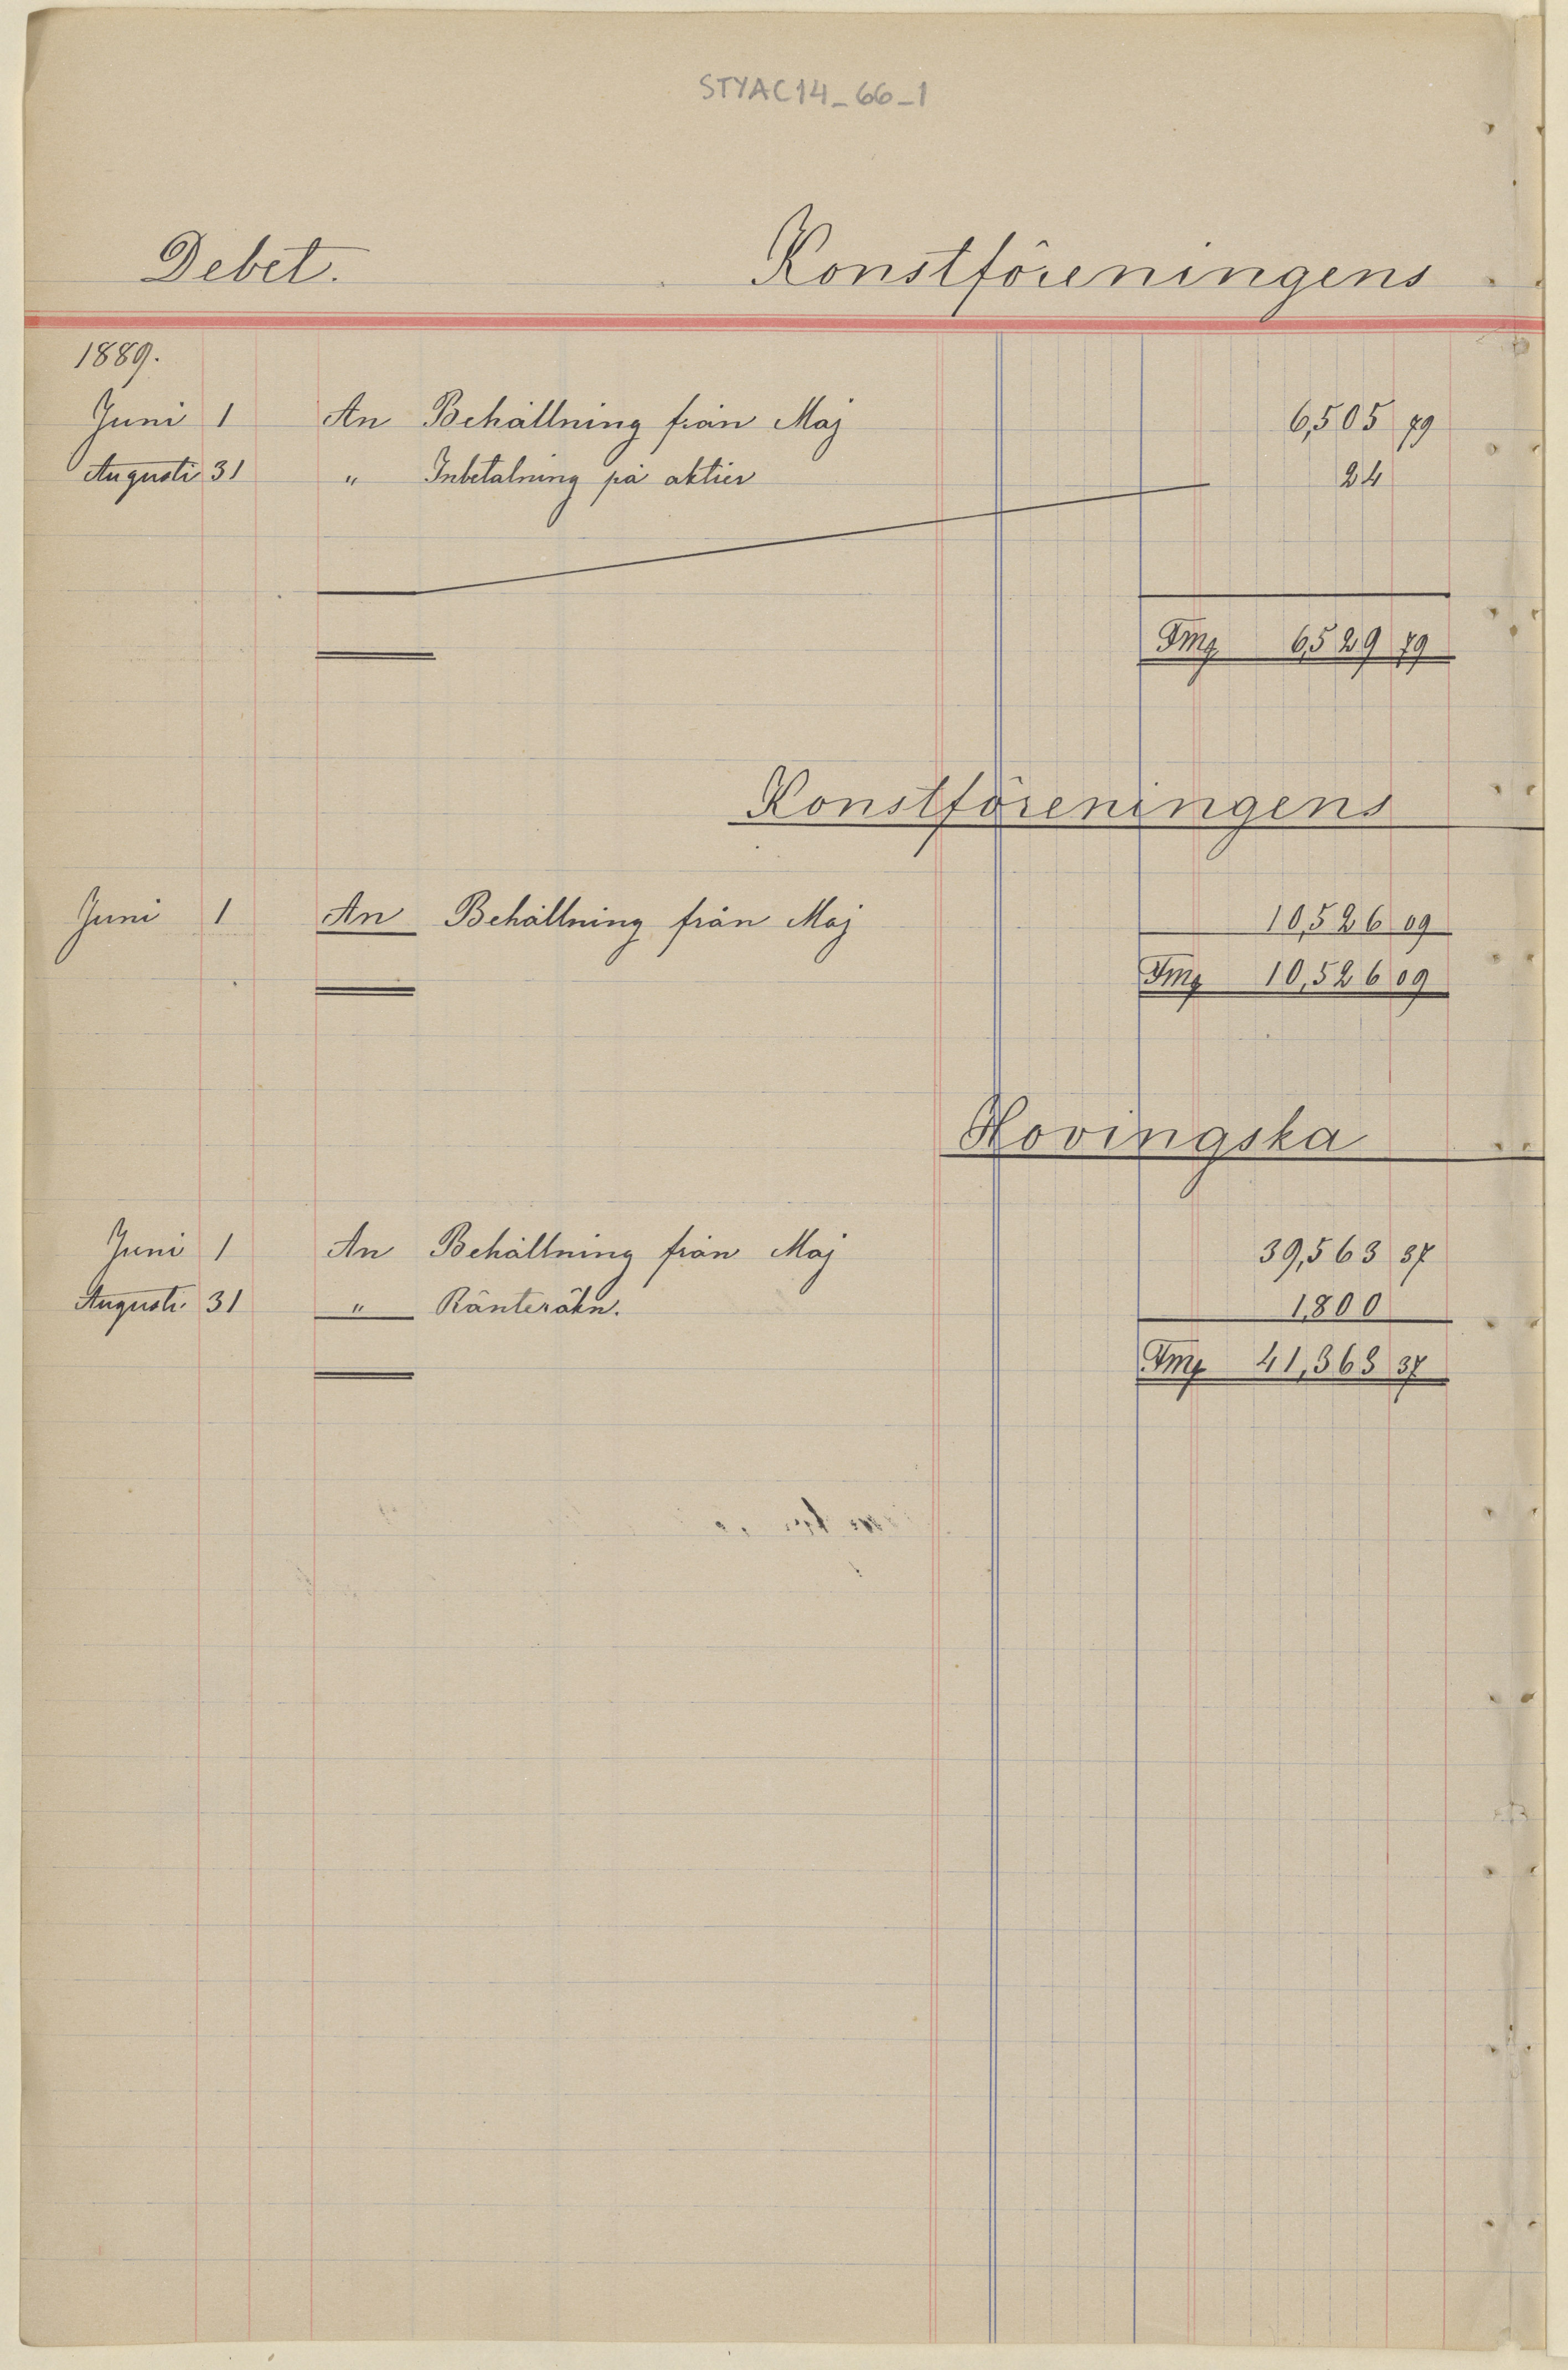 STYAC14_66_1
Debet. Konstföreningens
1889.
Juni 1 An Behållning från Maj 6,505 79
Augusti 31 " Inbetalning på aktier 24
Fmg 6,529 79
Konstföreningens
Juni 1 An Behållning från Maj 10,526 09
Fmg 10,526 09
Hovingska
Juni 1 An Behållning från Maj 39,563 37
Augusti 31 " Ränteräkn. 1,800
Fmg 41,363 37